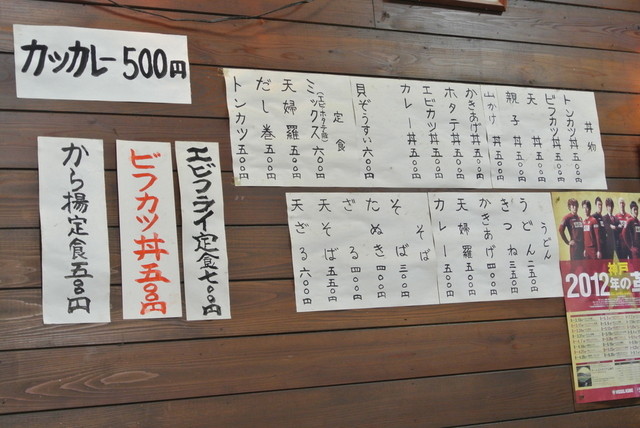 カツカレー 500円
から揚定食 五〇〇円
ビフカツ丼 五〇〇円
エビフライ定食 七〇〇円
丼物
トンカツ丼 五〇〇円
ビフカツ丼 五〇〇円
天丼 五〇〇円
親子丼 五〇〇円
山かけ丼 五〇〇円
かきあげ丼 五〇〇円
ホタテ丼 五〇〇円
エビカツ丼 五〇〇円
カレー丼 五〇〇円
貝ぞうすい 六〇〇円
定食
ミックス(エビ・ホタテ・他) 六〇〇円
天婦羅 五〇〇円
だし巻 五〇〇円
トンカツ 五〇〇円
うどん
うどん 二五〇円
きつね 三五〇円
かきあげ 四〇〇円
天婦羅 五五〇円
カレー 五〇〇円
そば
そば 三〇〇円
たぬき 四〇〇円
ざる 四〇〇円
天そば 五五〇円
天ざる 六〇〇円
神戸
2012年の